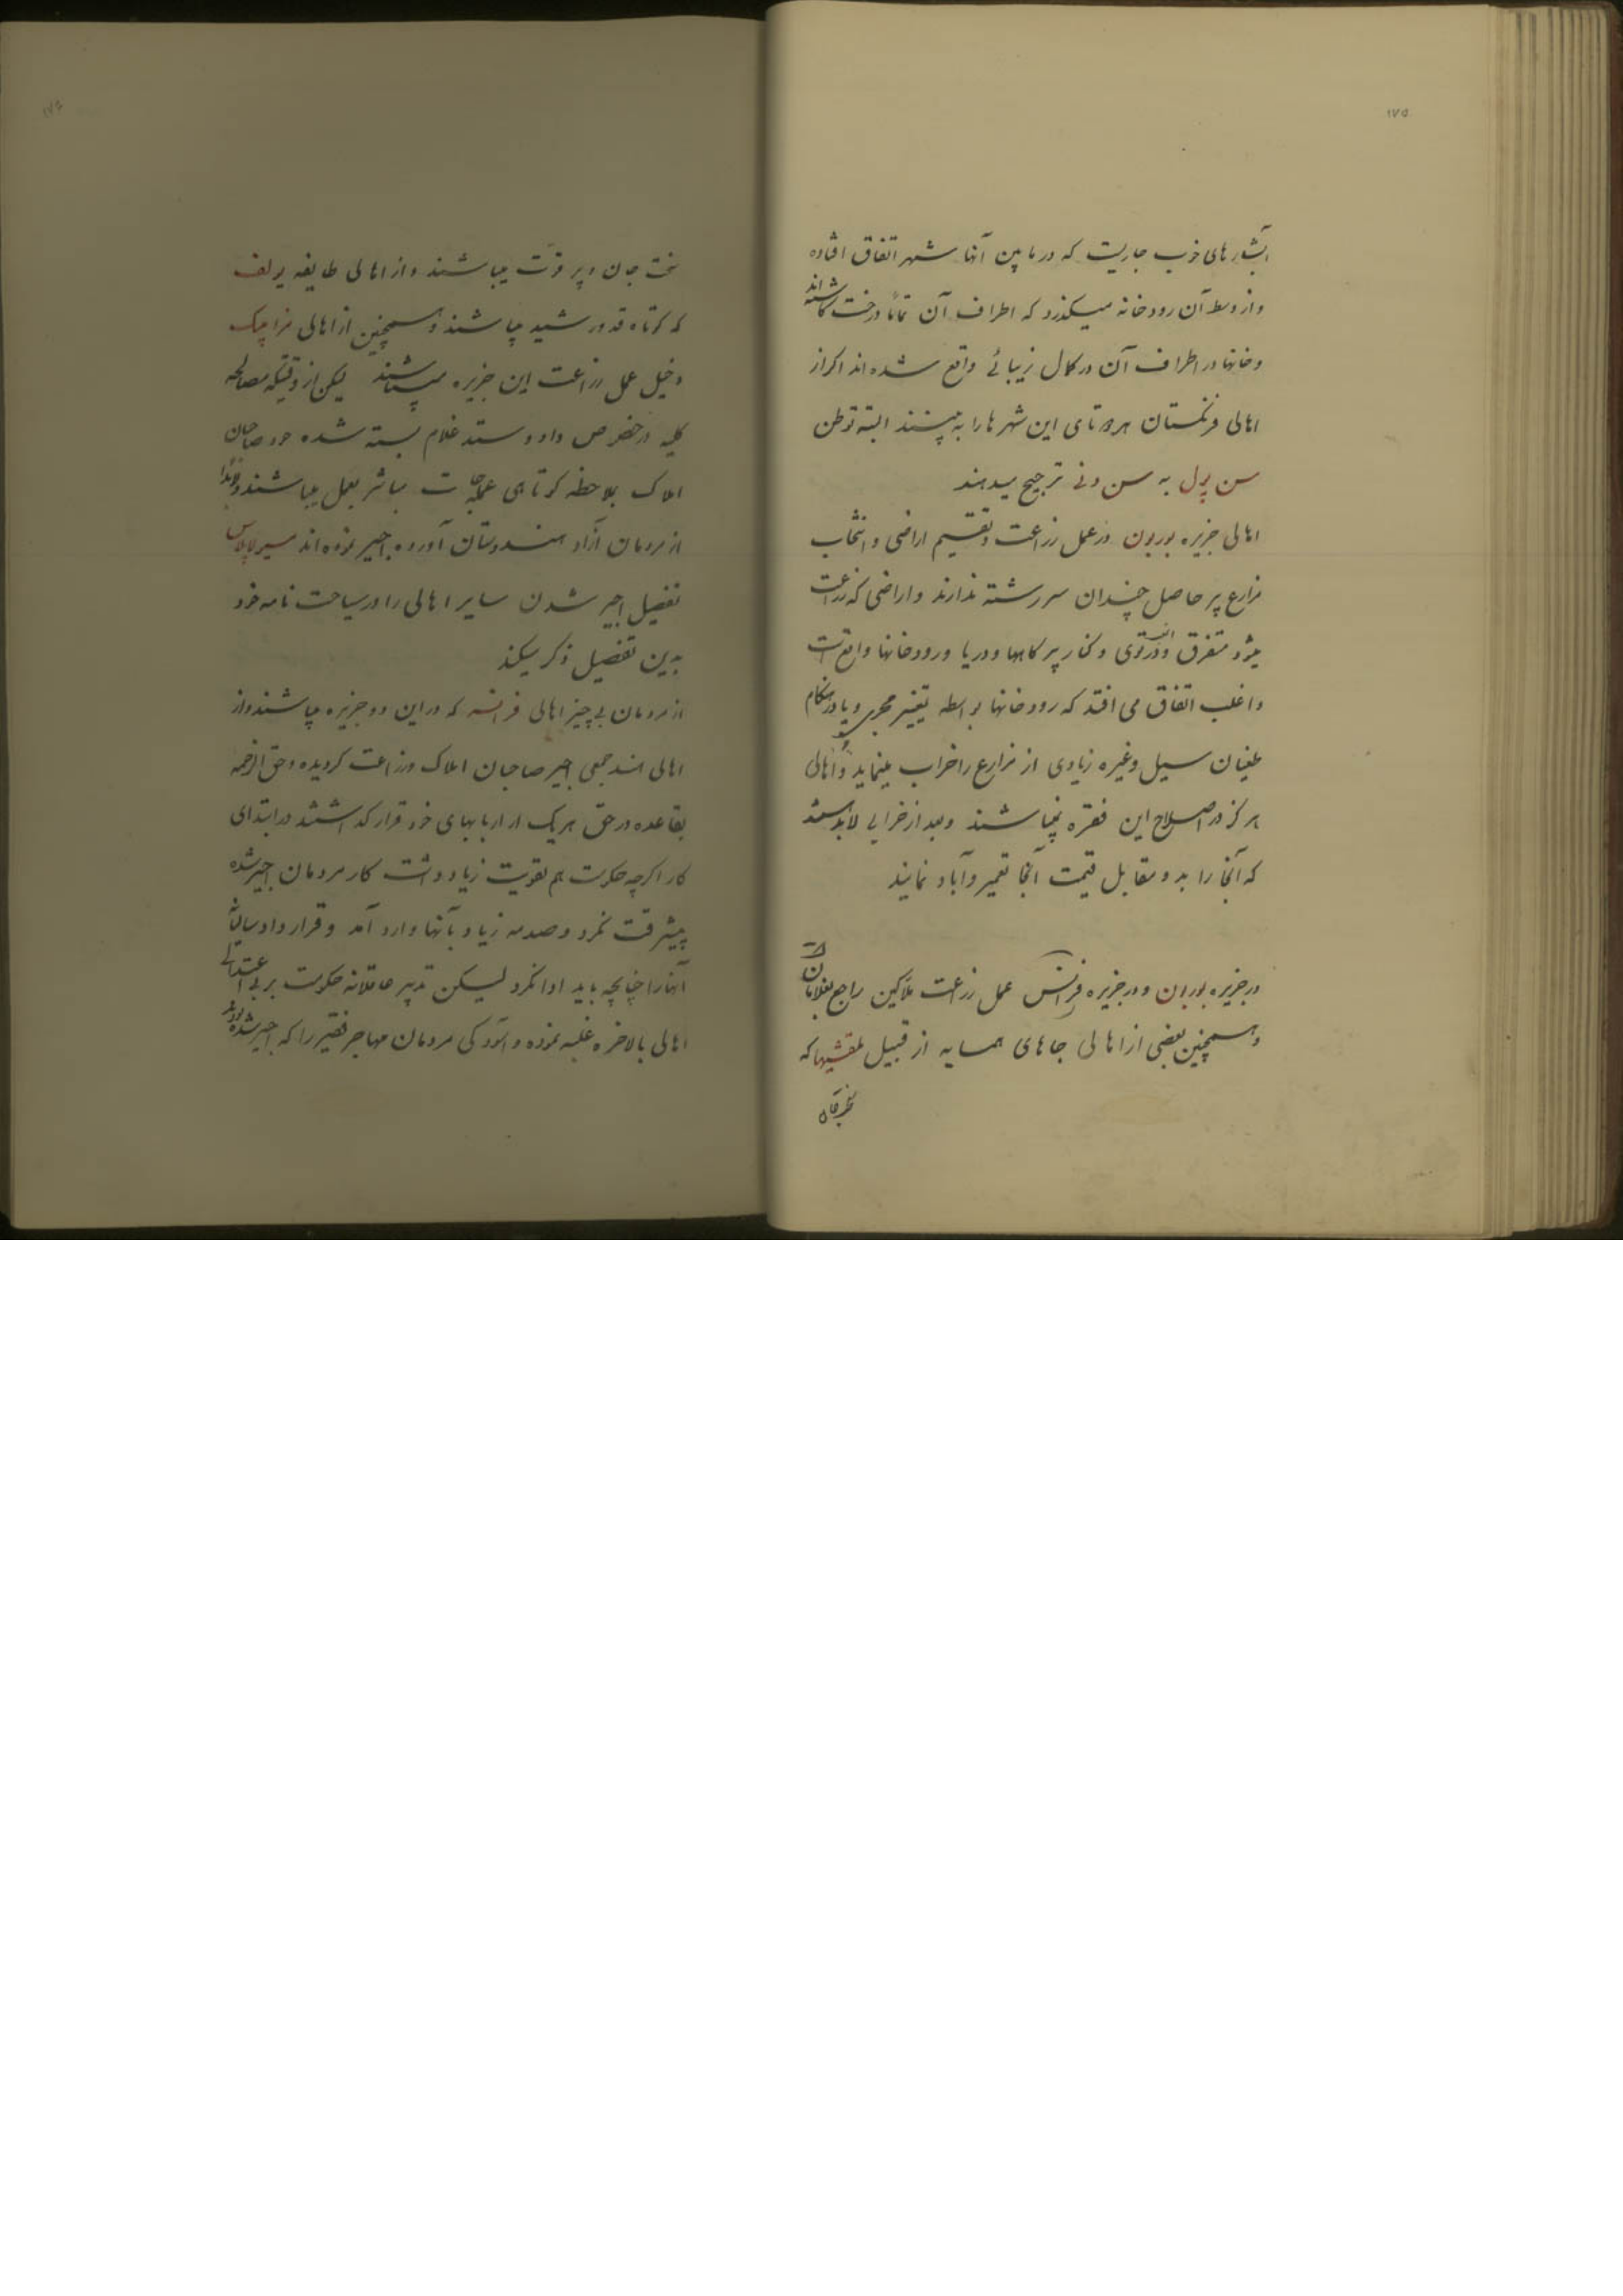 ۱۷۵
آبشارهای خوب جاریست که در مابین آنها شهر اتفاق افتاده
و از وسط آن رودخانه میکذرد که اطراف آن تماماً درخت کاشته‌اند
و خانها در اطراف آن در کمال زیبائی واقع شده اند اکر از
اهالی فرنکستان هر دو تای این شهرها را به بینند البته توطن
سن پول به سن دنی ترجیح میدهند
اهالی جزیره بوربون در عمل زراعت و تقسیم اراضی و انتخاب
مزارع پر حاصل چندان سررشته ندارند و اراضی که زراعت
میشود متفرق و در توی و کنار پرتکاهها و دریا و رودخانها واقع است
و اغلب اتفاق می افتد که رودخانها بواسطه تغییر مجری و یا در هنکام
طغیان سیل و غیره زیادی از مزارع را خراب مینماید و اهالی
هرکز در اصلاح این فقره نمیباشند و بعد از خرابی لابد هستند
که آنجا را بدو مقابل قیمت آنجا تعمیر و آباد نمایند
در جزیره بوربون و در جزیره فرانس عمل زراعت ملاکین راجع بغلامان است
و همچنین بعضی از اهالی جاهای همسایه از قبیل ملقشیها که
سخت جان و پر قوّت میباشند و از اهالی طایفه یولف
که کوتاه قد و رشید میباشند و همچنین از اهالی مزامبیک
دخیل عمل زراعت این جزیره میباشند لیکن از وقتیکه مصالحه
کلیه در خصوص داد و ستد غلام بسته شده خود صاحبان
املاک بملاحظه کوتاهی عملجات مباشر بعمل میباشند و
از مردمان آزاد هندوستان آورده اجیر نموده اند مسیر لاپلاس
تفصیل اجیر شدن سایر اهالی را در سیاحت نامه خود
بدین تفصیل ذکر میکند
از مردمان بی چیز اهالی فرانسه که در این دو جزیره میباشند و از
اهالی هند جمعی اجیر صاحبان املاک و زراعت کردیده و حق الزحمه
بقاعده در حق هریک از اربابهای خود قرار کذاشتند در ابتدای
کار اکرچه حکومت هم تقویت زیاد داشت کار مردمان اجیر شده
پیشرفت نکرد و صدمه زیاد بآنها وارد آمد و قرار داد سالیانه
آنها را چنانچه باید ادا نکرد لیسکن تدبیر عاقلانه حکومت بر بی اعتدالی
اهالی بالاخره غلبه نموده و آسودکی مردمان مهاجر فقیر را که اجیر شده بودند